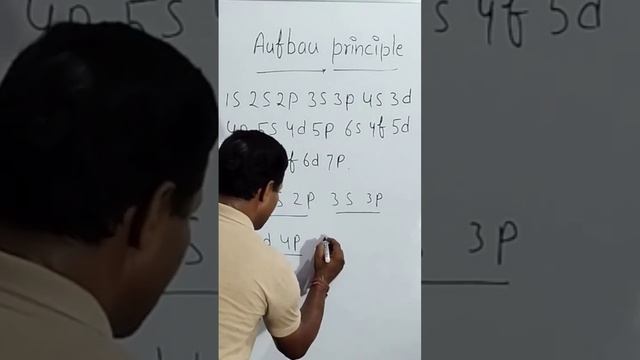 Aufbau principle
1S 2S 2P 3S 3P 4S 3d
4P 5S 4d 5P 6S 4f 5d
f 6d 7P.
S 2P 3S 3P
d 4P